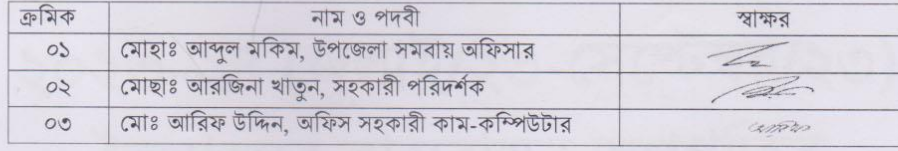 ক্রমিক নাম ও পদবী স্বাক্ষর
০১ মোহাঃ আব্দুল মকিম, উপজেলা সমবায় অফিসার
০২ মোছাঃ আরজিনা খাতুন, সহকারী পরিদর্শক
০৩ মোঃ আরিফ উদ্দিন, অফিস সহকারী কাম-কম্পিউটার